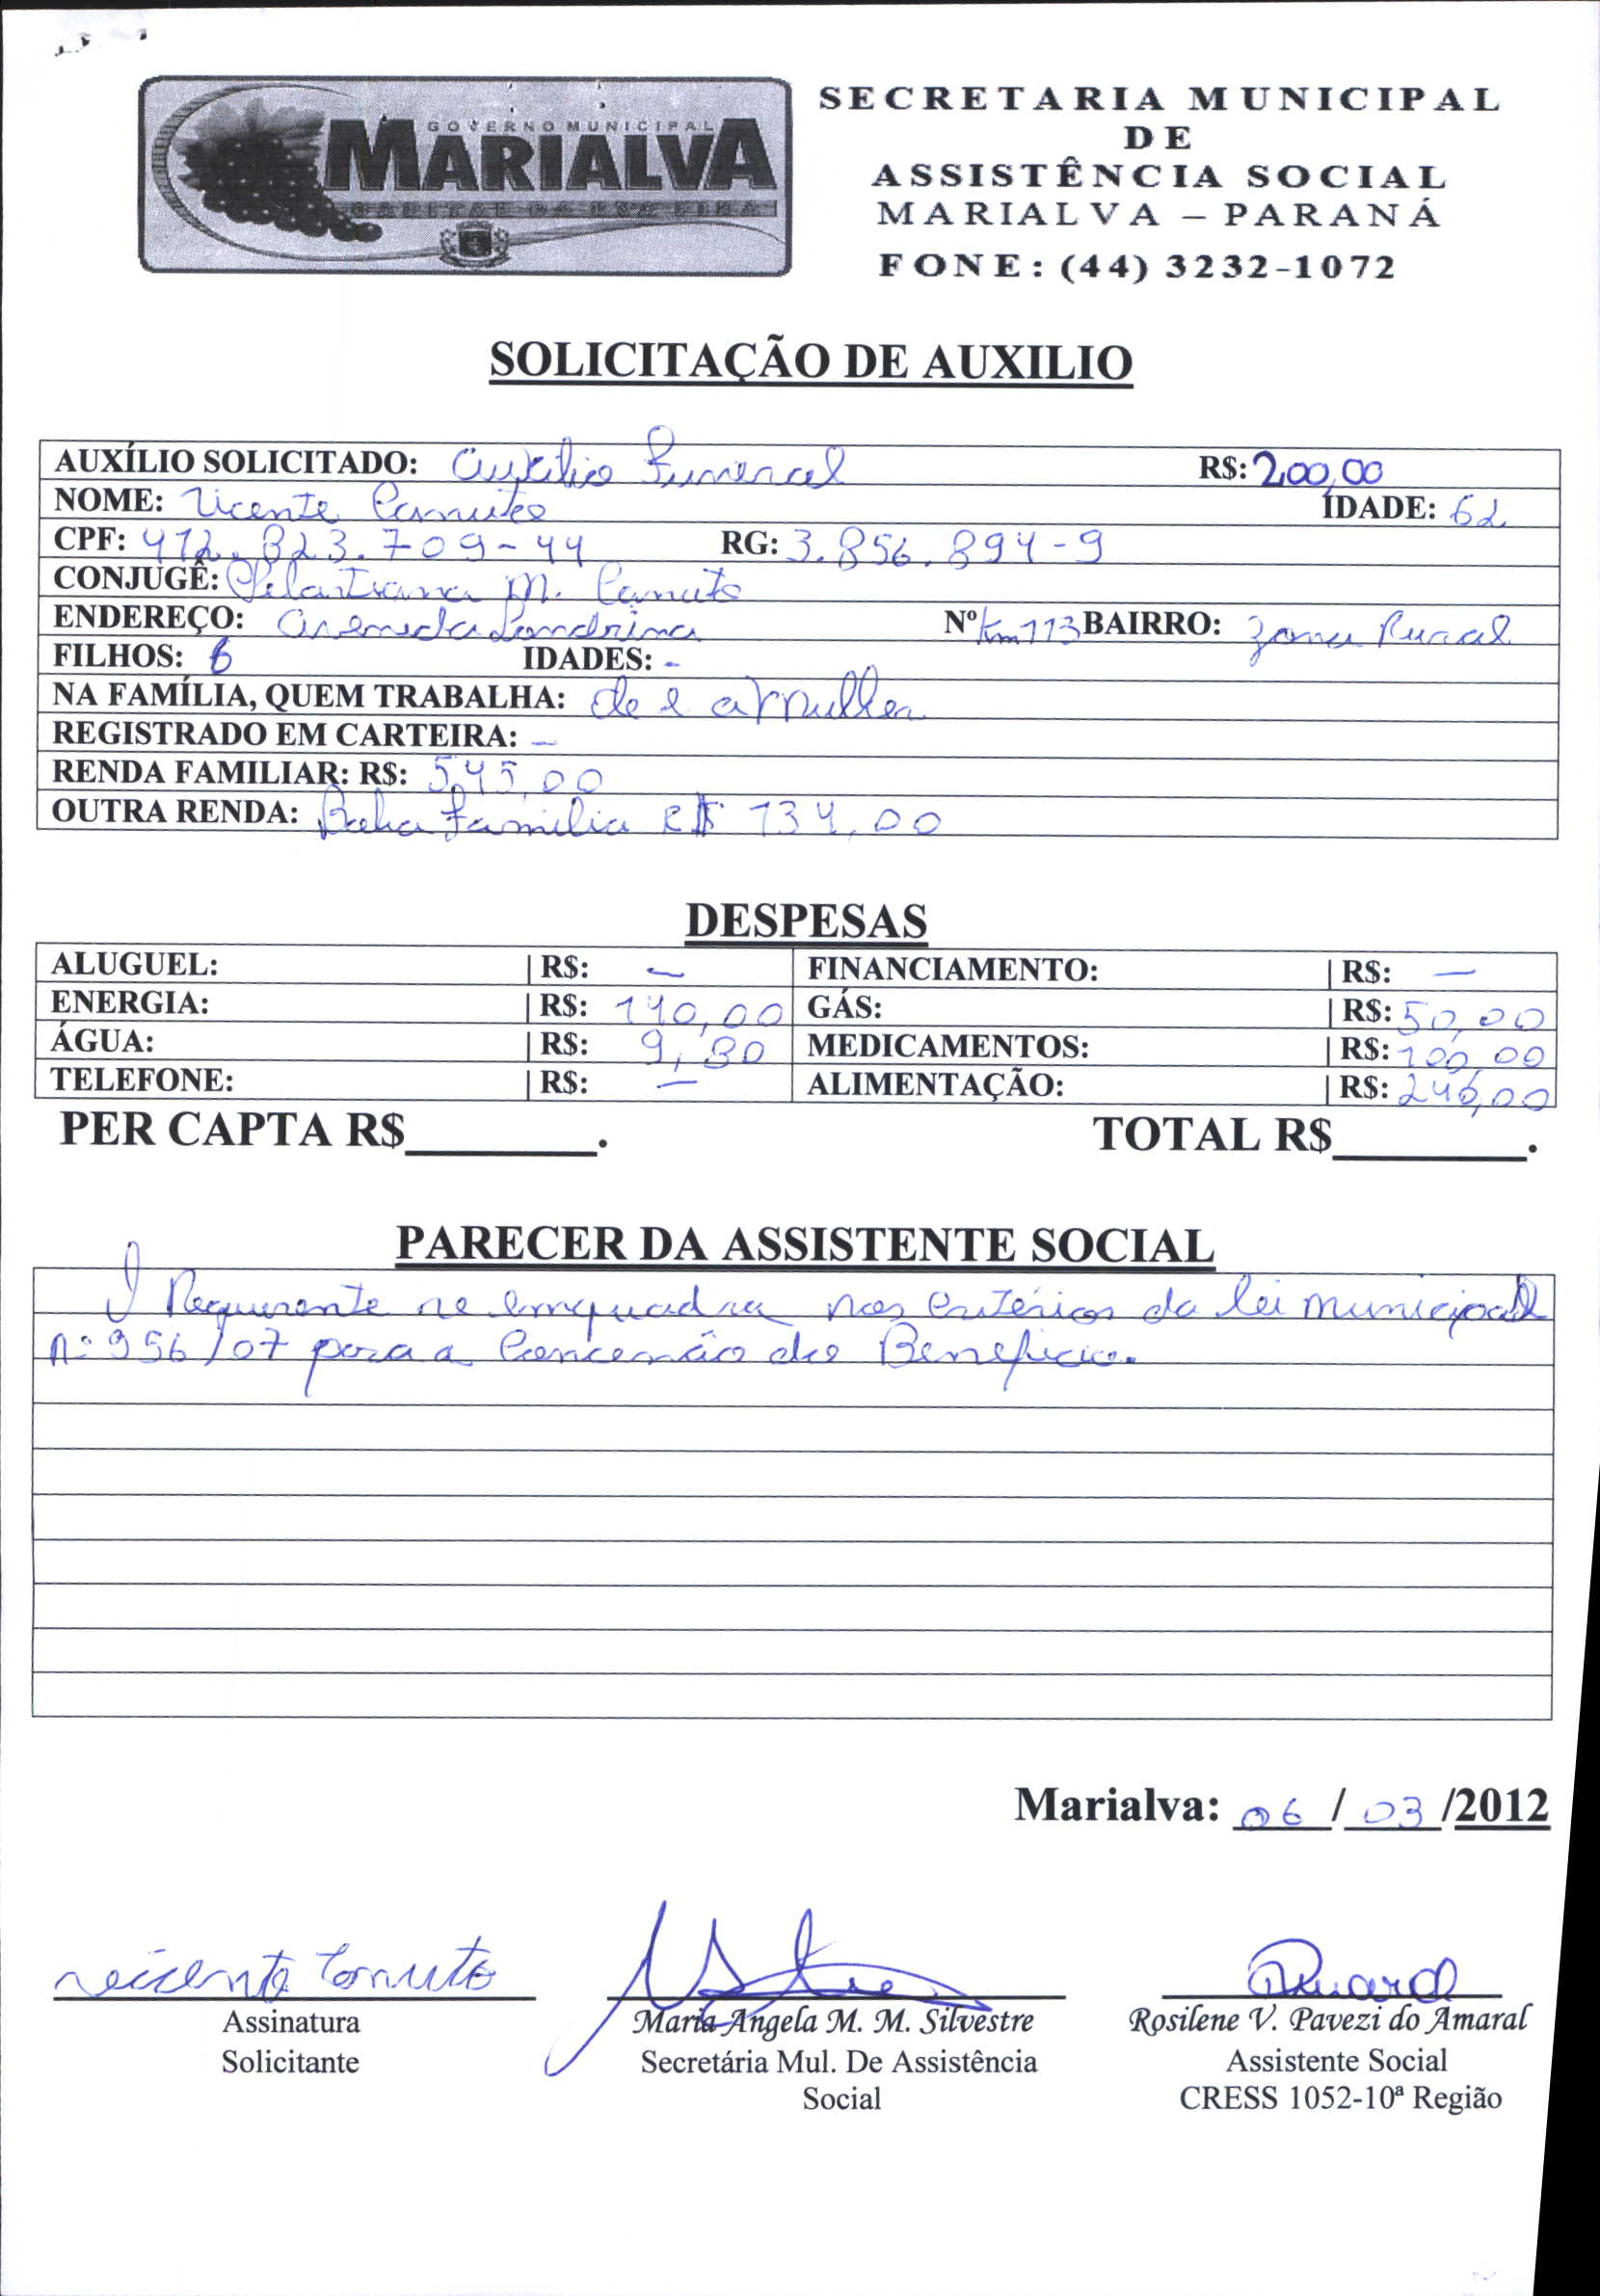 GOVERNO MUNICIPAL
MARIALVA
CAPITAL DA UVA FINA
SECRETARIA MUNICIPAL
DE
ASSISTÊNCIA SOCIAL
MARIALVA – PARANÁ
FONE: (44) 3232-1072
SOLICITAÇÃO DE AUXILIO
AUXÍLIO SOLICITADO: Auxilio Funeral R$: 200,00
NOME: Vicente Canuto IDADE: 62
CPF: 412.823.709-44 RG: 3.856.894-9
CONJUGÊ: M. Canuto
ENDEREÇO: Avenida Londrina Nº Km 113 BAIRRO: Zona Rural
FILHOS: 6 IDADES: -
NA FAMÍLIA, QUEM TRABALHA: ele e a Mulher
REGISTRADO EM CARTEIRA: -
RENDA FAMILIAR: R$: 545,00
OUTRA RENDA: Bolsa Família R$ 134,00
DESPESAS
ALUGUEL: | R$: - FINANCIAMENTO: | R$: -
ENERGIA: | R$: 140,00 GÁS: | R$: 50,00
ÁGUA: | R$: 9,80 MEDICAMENTOS: | R$: 100,00
TELEFONE: | R$: - ALIMENTAÇÃO: | R$: 246,00
PER CAPTA R$________. TOTAL R$________.
PARECER DA ASSISTENTE SOCIAL
O Requerente se enquadra nos critérios da lei municipal
nº 956/07 para a Concessão do Benefício.
Marialva: 06 / 03 /2012
Vicente Canuto Amaral
Assinatura Maria Angela M. M. Silvestre Rosilene V. Pavezi do Amaral
Solicitante Secretária Mul. De Assistência Assistente Social
Social CRESS 1052-10ª Região